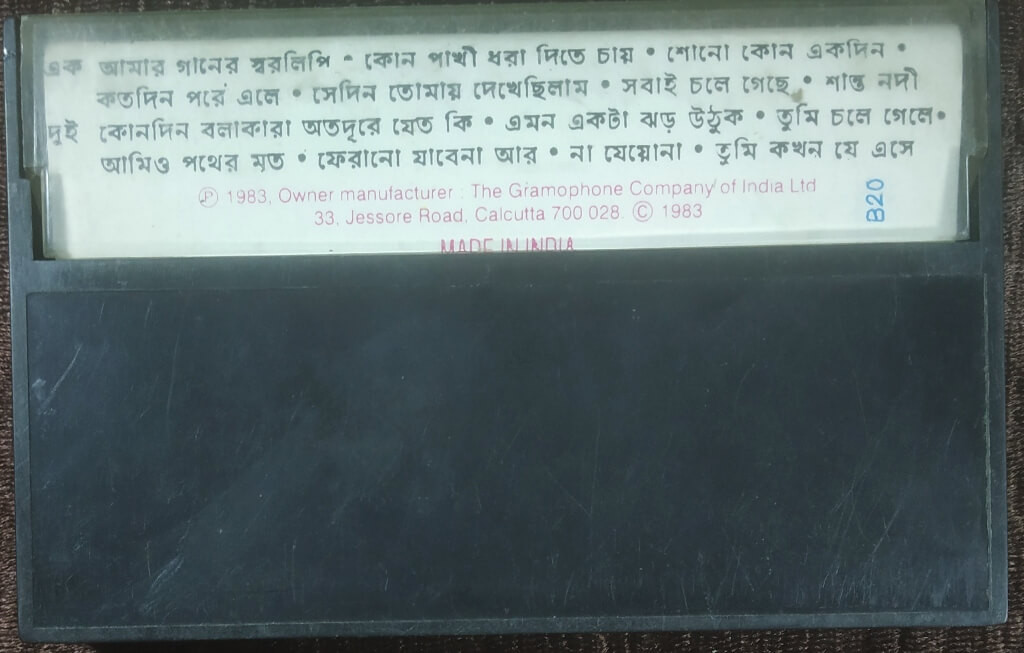 এক আমার গানের স্বরলিপি • কোন পাখী ধরা দিতে চায় • শোনো কোন একদিন •
কতদিন পরে এলে • সেদিন তোমায় দেখেছিলাম • সবাই চলে গেছে • শান্ত নদী
দুই কোনদিন বলাকারা অতদূরে যেত কি • এমন একটা ঝড় উঠুক • তুমি চলে গেলে •
আমিও পথের মত • ফেরানো যাবেনা আর • না যেয়োনা • তুমি কখন যে এসে
Ⓟ 1983, Owner manufacturer : The Gramophone Company of India Ltd
33, Jessore Road, Calcutta 700 028. © 1983
MADE IN INDIA
B20